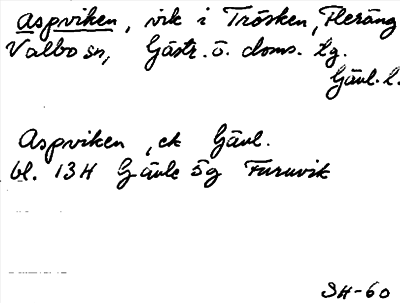 Aspviken, vik i Trösken, Fleräng
Valbo sn, Gästr. ö. doms. lg.
Gävl. l.
Aspviken, ek Gävl.
bl. 13H Gävle 5g Furuvik
SH-60